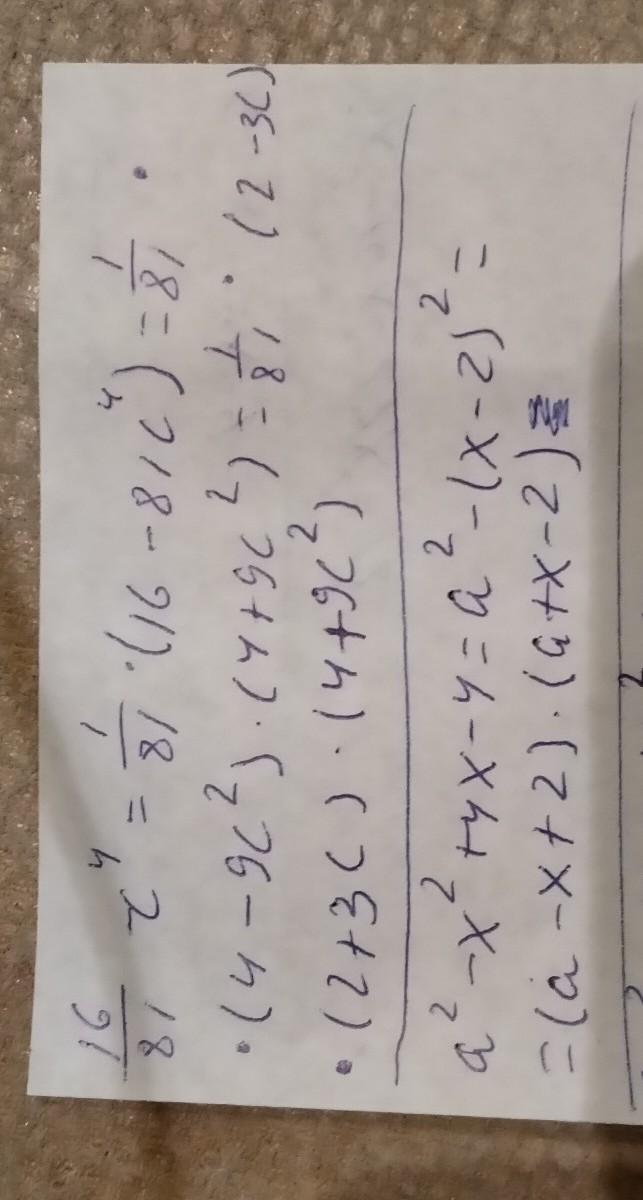 16/81 c⁴ = 1/81 · (16 - 81c⁴) = 1/81 ·
· (4 - 9c²) · (4 + 9c²) = 1/81 · (2 - 3c)
· (2 + 3c) · (4 + 9c²)
a² - x² + 4x - 4 = a² - (x - 2)² =
= (a - x + 2) · (a + x - 2)